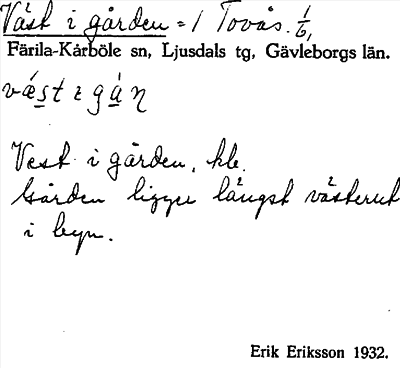 Väst i gården = 1 Tovås. 1/6,
Färila-Kårböle sn, Ljusdals tg, Gävleborgs län.
væst i gån
Vest i gården, kle.
Gården ligger längst västerut
i byn.
Erik Eriksson 1932.